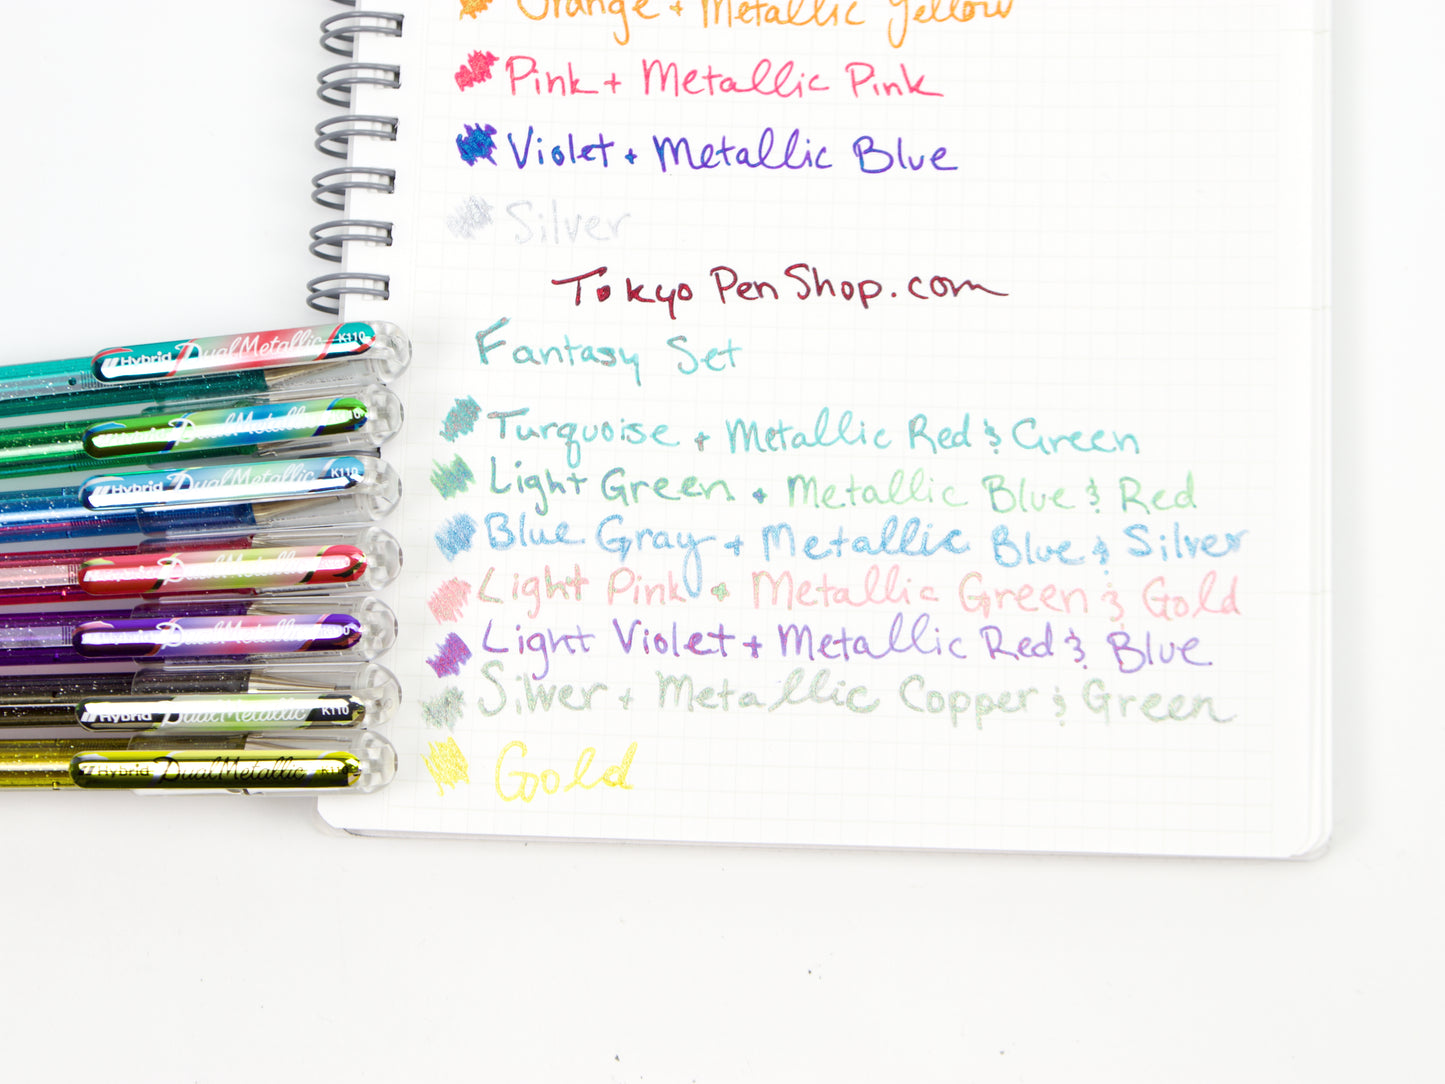 Orange + Metallic Yellow
Pink + Metallic Pink
Violet + Metallic Blue
Silver
TokyoPenShop.com
Fantasy Set
Turquoise + Metallic Red & Green
Light Green + Metallic Blue & Red
Blue Gray + Metallic Blue & Silver
Light Pink + Metallic Green & Gold
Light Violet + Metallic Red & Blue
Silver + Metallic Copper & Green
Gold
Hybrid DualMetallic K110
Hybrid DualMetallic
Hybrid DualMetallic K110
DualMetallic
Hybrid DualMetallic
Hybrid DualMetallic K110
Hybrid DualMetallic K110